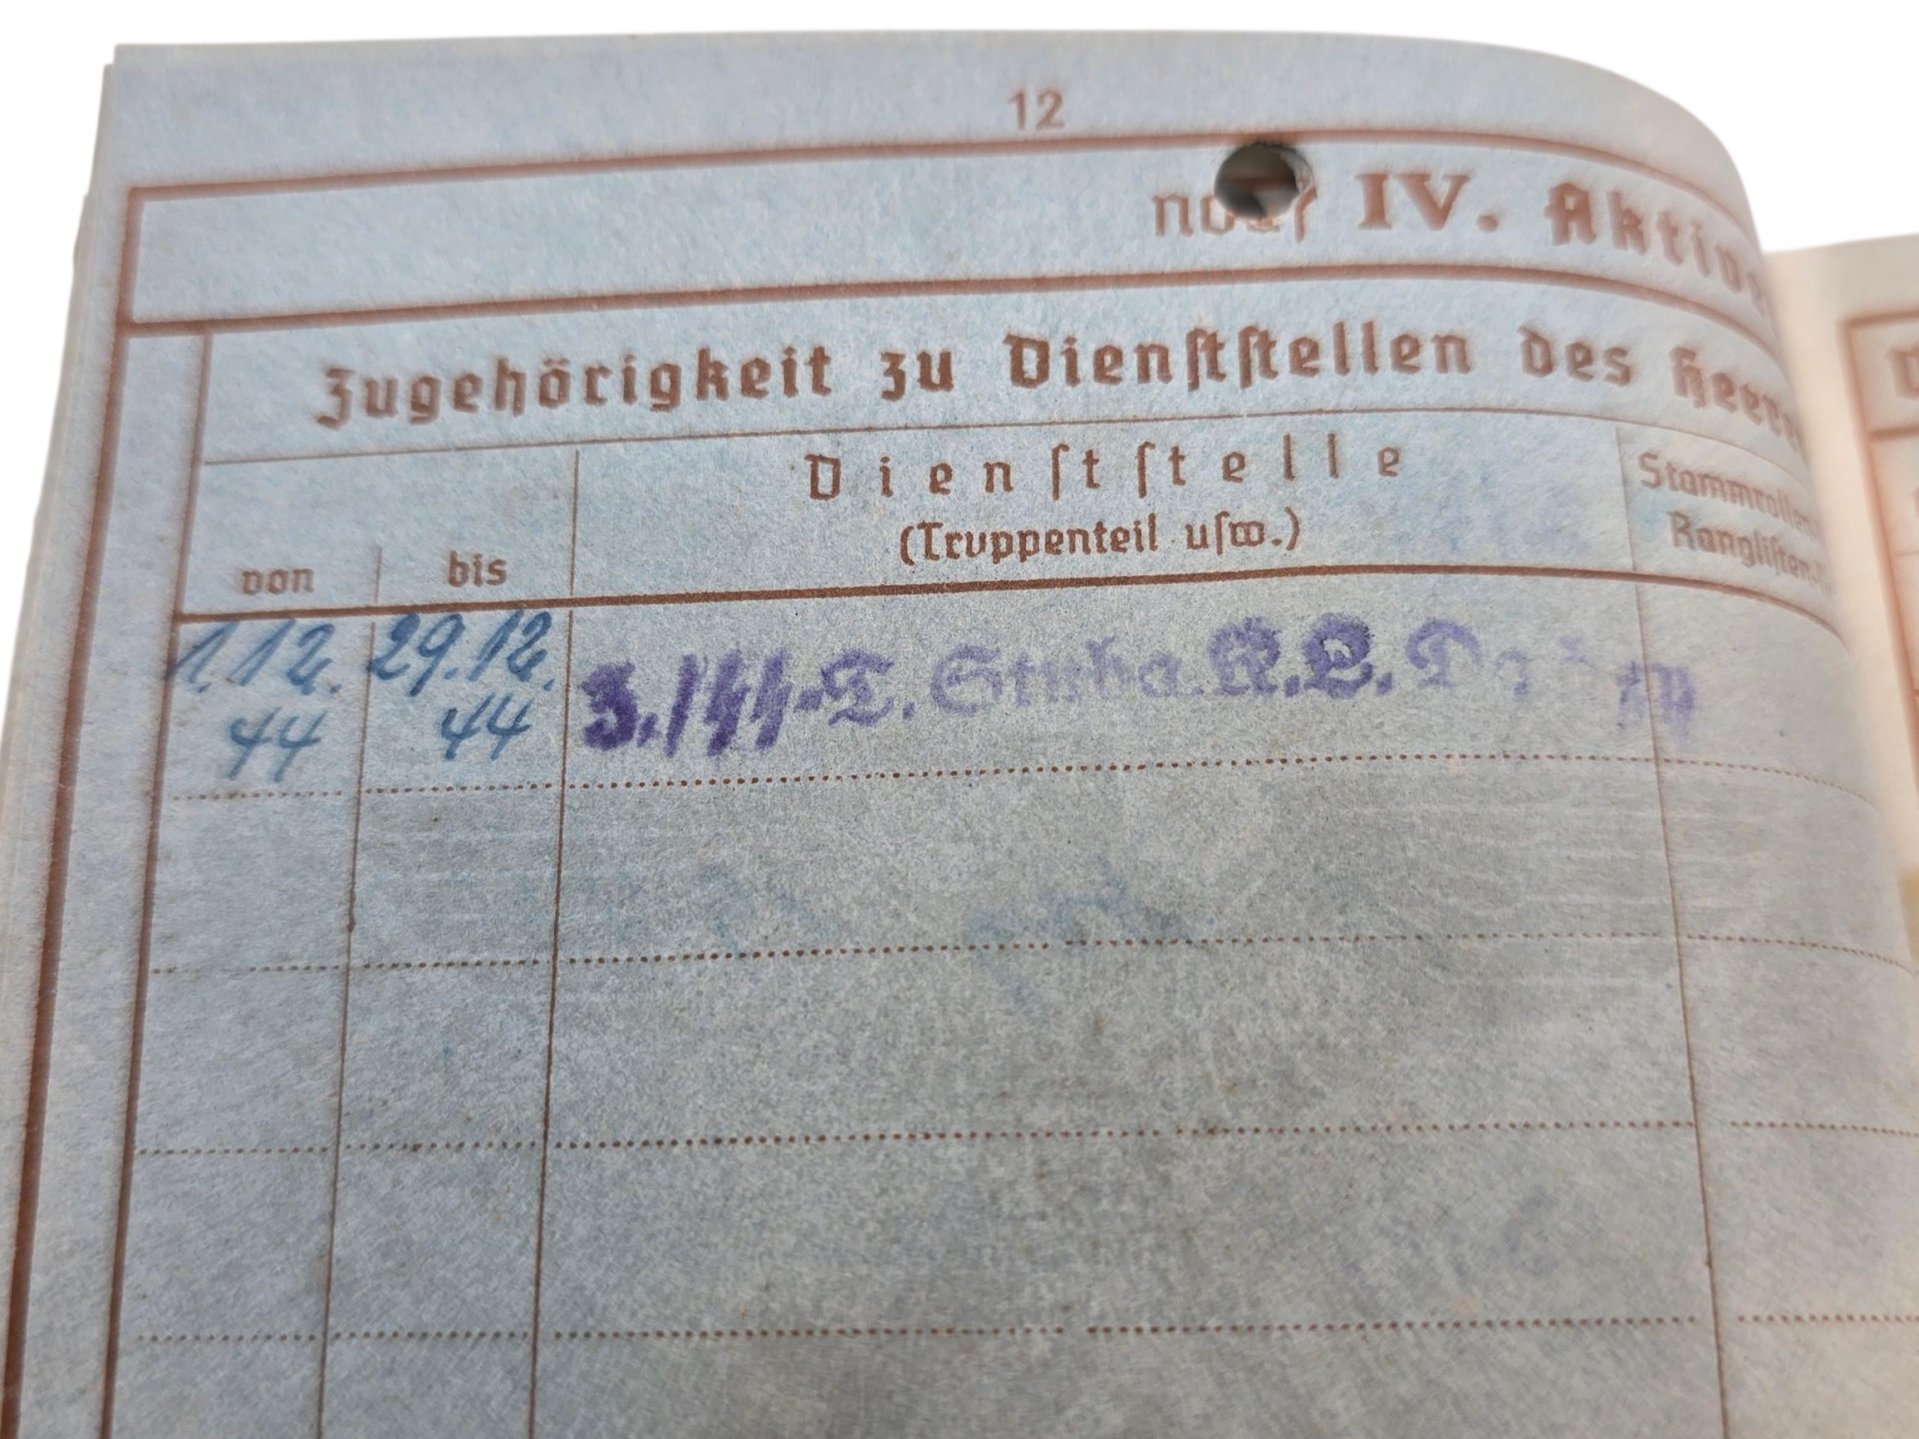 12
noch IV. Aktive
Zugehörigkeit zu Dienststellen des Heere
von
bis
Dienststelle
(Truppenteil usw.)
Stammrollen
Ranglisten
1.12.44
29.12.44
3./SS-T. Stuba. K.L. Dachau